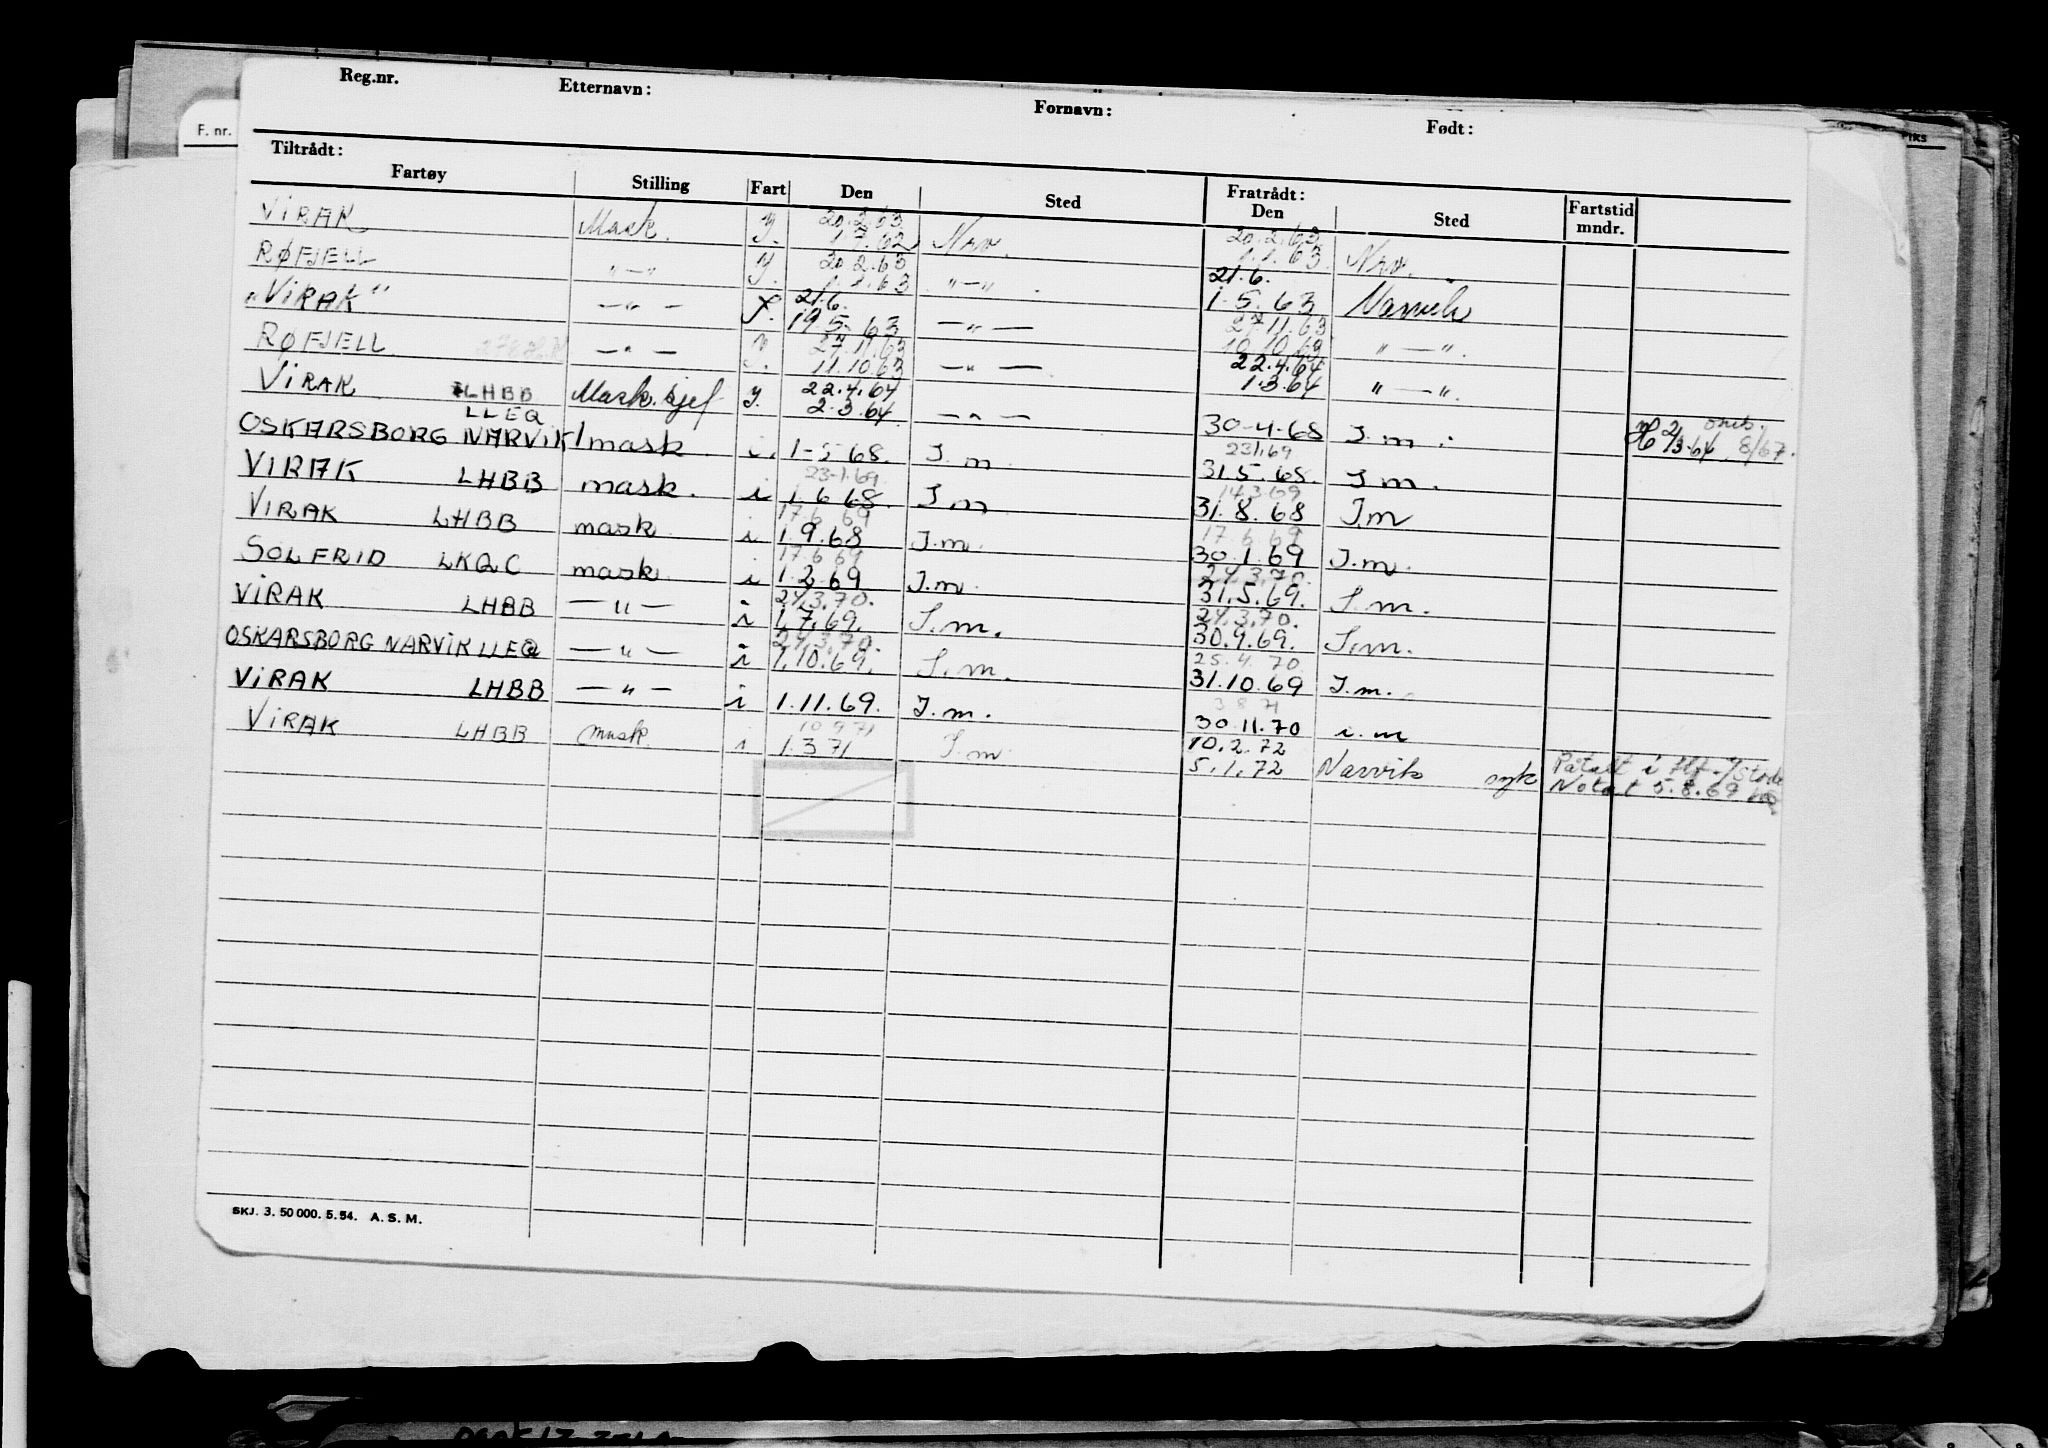 Reg.nr. Etternavn: Fornavn: Født:
F. nr.
Tiltrådt: Fratrådt:
Fartøy Stilling Fart Den Sted Den Sted Fartstid mndr.
20.2.63 20.2.63
VIRAK Mask. y. 1.7.62 Nrv. 1.1.63 Nrv.
20.2.63 21.6.
RØFJELL "—" y. 1.1.63 "—" 1.5.63 Narvik
21.6. 27.11.63
"VIRAK" —"— 19.5.63 —"— 10.10.63 "—".
27.11.63 22.4.64
RØFJELL —"— y. 11.10.63 —"— 1.3.64 "—".
22.4.64
VIRAK LHBB Mask.sjef y. 2.3.64 —"— 30-4-68 I.m. 2/3-64 8/67.
LLEQ 23/1.69
OSKARSBORG NARVIK 1mask i. 1-5-68. I.m. 31.5.68. I.m.
23-1.69. 14.3.69
VIRAK LHBB mask. i 1.6.68. I.m 31.8.68 I.m
17.6.69 17.6.69
VIRAK LHBB mask i 1.9.68 I.m. 30.1.69 I.m.
17.6.69 24.3.70.
SOLFRID LKQC mask i 1.2.69 I.m. 31.5.69. I.m.
24.3.70. 24.3.70.
VIRAK LHBB —"— i 1.7.69. I.m. 30.9.69. I.m.
24.3.70. 25.4.70
OSKARSBORG NARVIK LLEQ —"— i 1.10.69. I.m. 31.10.69 I.m.
3 8 71
VIRAK LHBB —"— i 1.11.69. I.m. 30.11.70 i.m
10 9 71 10.2.72
VIRAK LHBB mask. i 1.3.71 I.m 5.1.72 Narvik syk Påtalt i
Notat 5.8.69
SKJ. 3. 50 000. 5. 54. A. S. M.